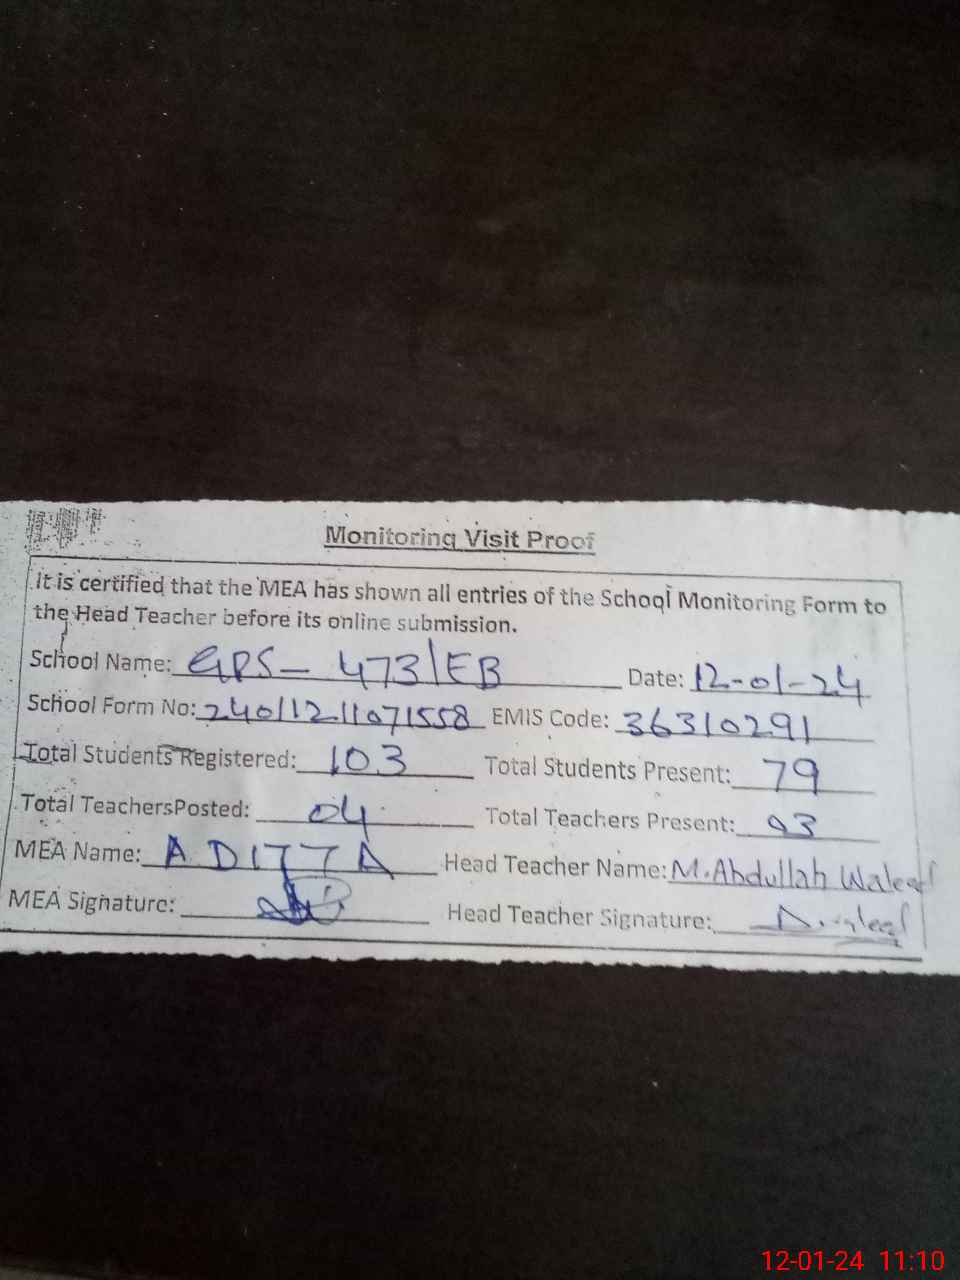 Monitoring Visit Proof
It is certified that the MEA has shown all entries of the School Monitoring Form to
the Head Teacher before its online submission.
School Name: GPS- 473/EB Date: 12-01-24
School Form No: 24011211071558 EMIS Code: 36310291
Total Students Registered: 103 Total Students Present: 79
Total TeachersPosted: 04 Total Teachers Present: 03
MEA Name: A DITTA Head Teacher Name: M.Abdullah
MEA Signature: Head Teacher Signature:
12-01-24 11:10